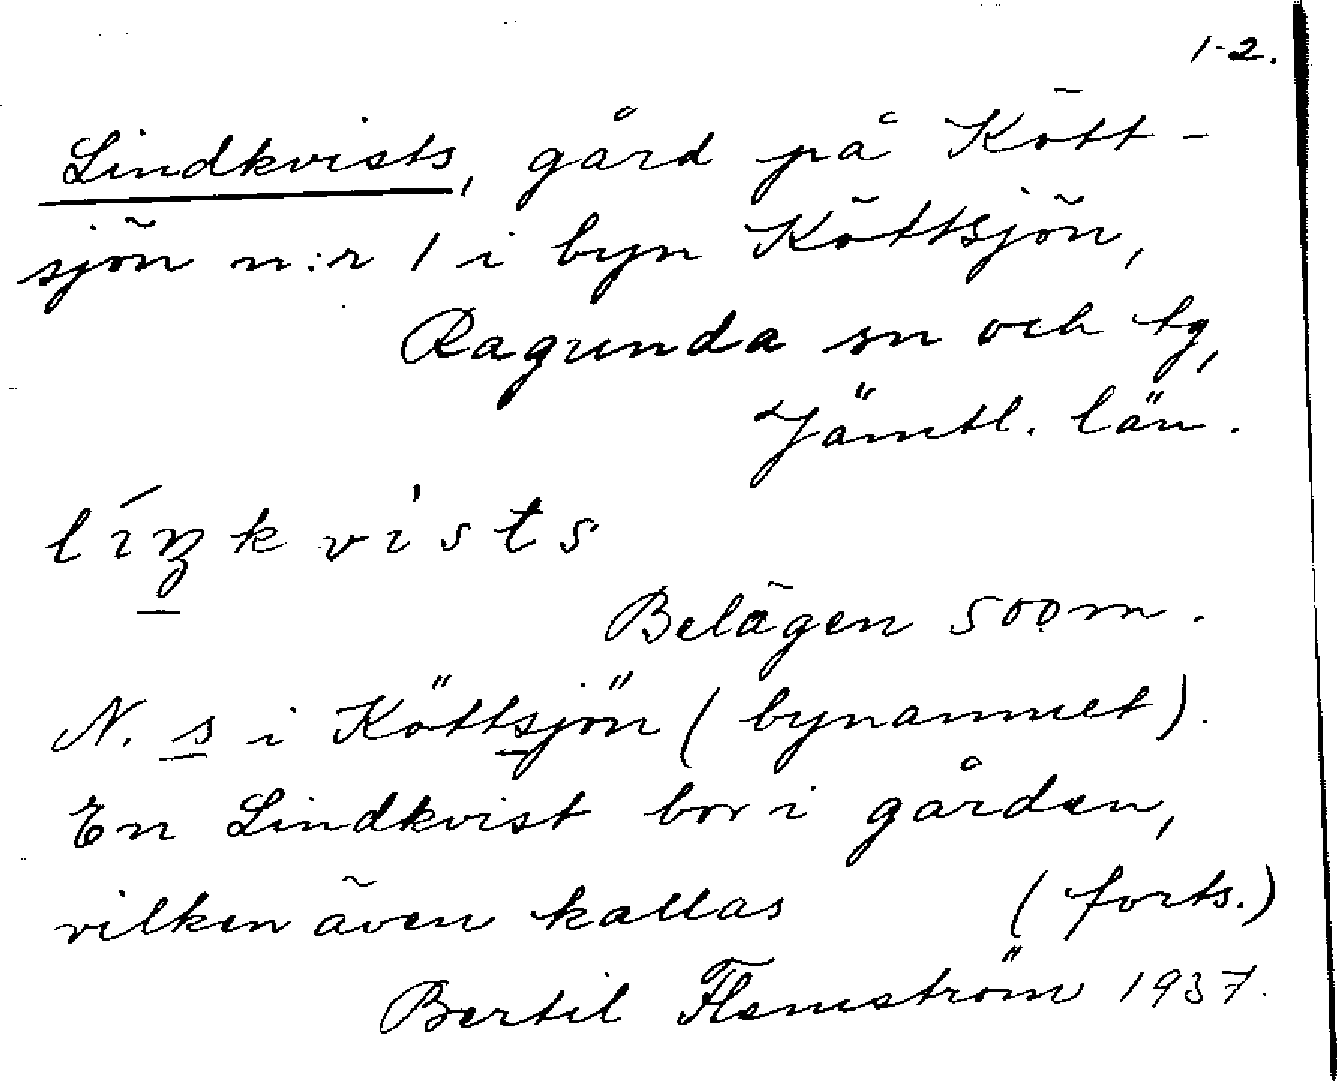 1-2.
Lindkvists, gård på Kött-
sjön n:r 1 i byn Köttsjön,
Ragunda sn och tg,
Jämtl. län.
línkvists
Belägen 500 m.
N. s i Köttsjön (bynamnet).
En Lindkvist bor i gården,
vilken även kallas (forts.)
Bertil Flemström 1937.